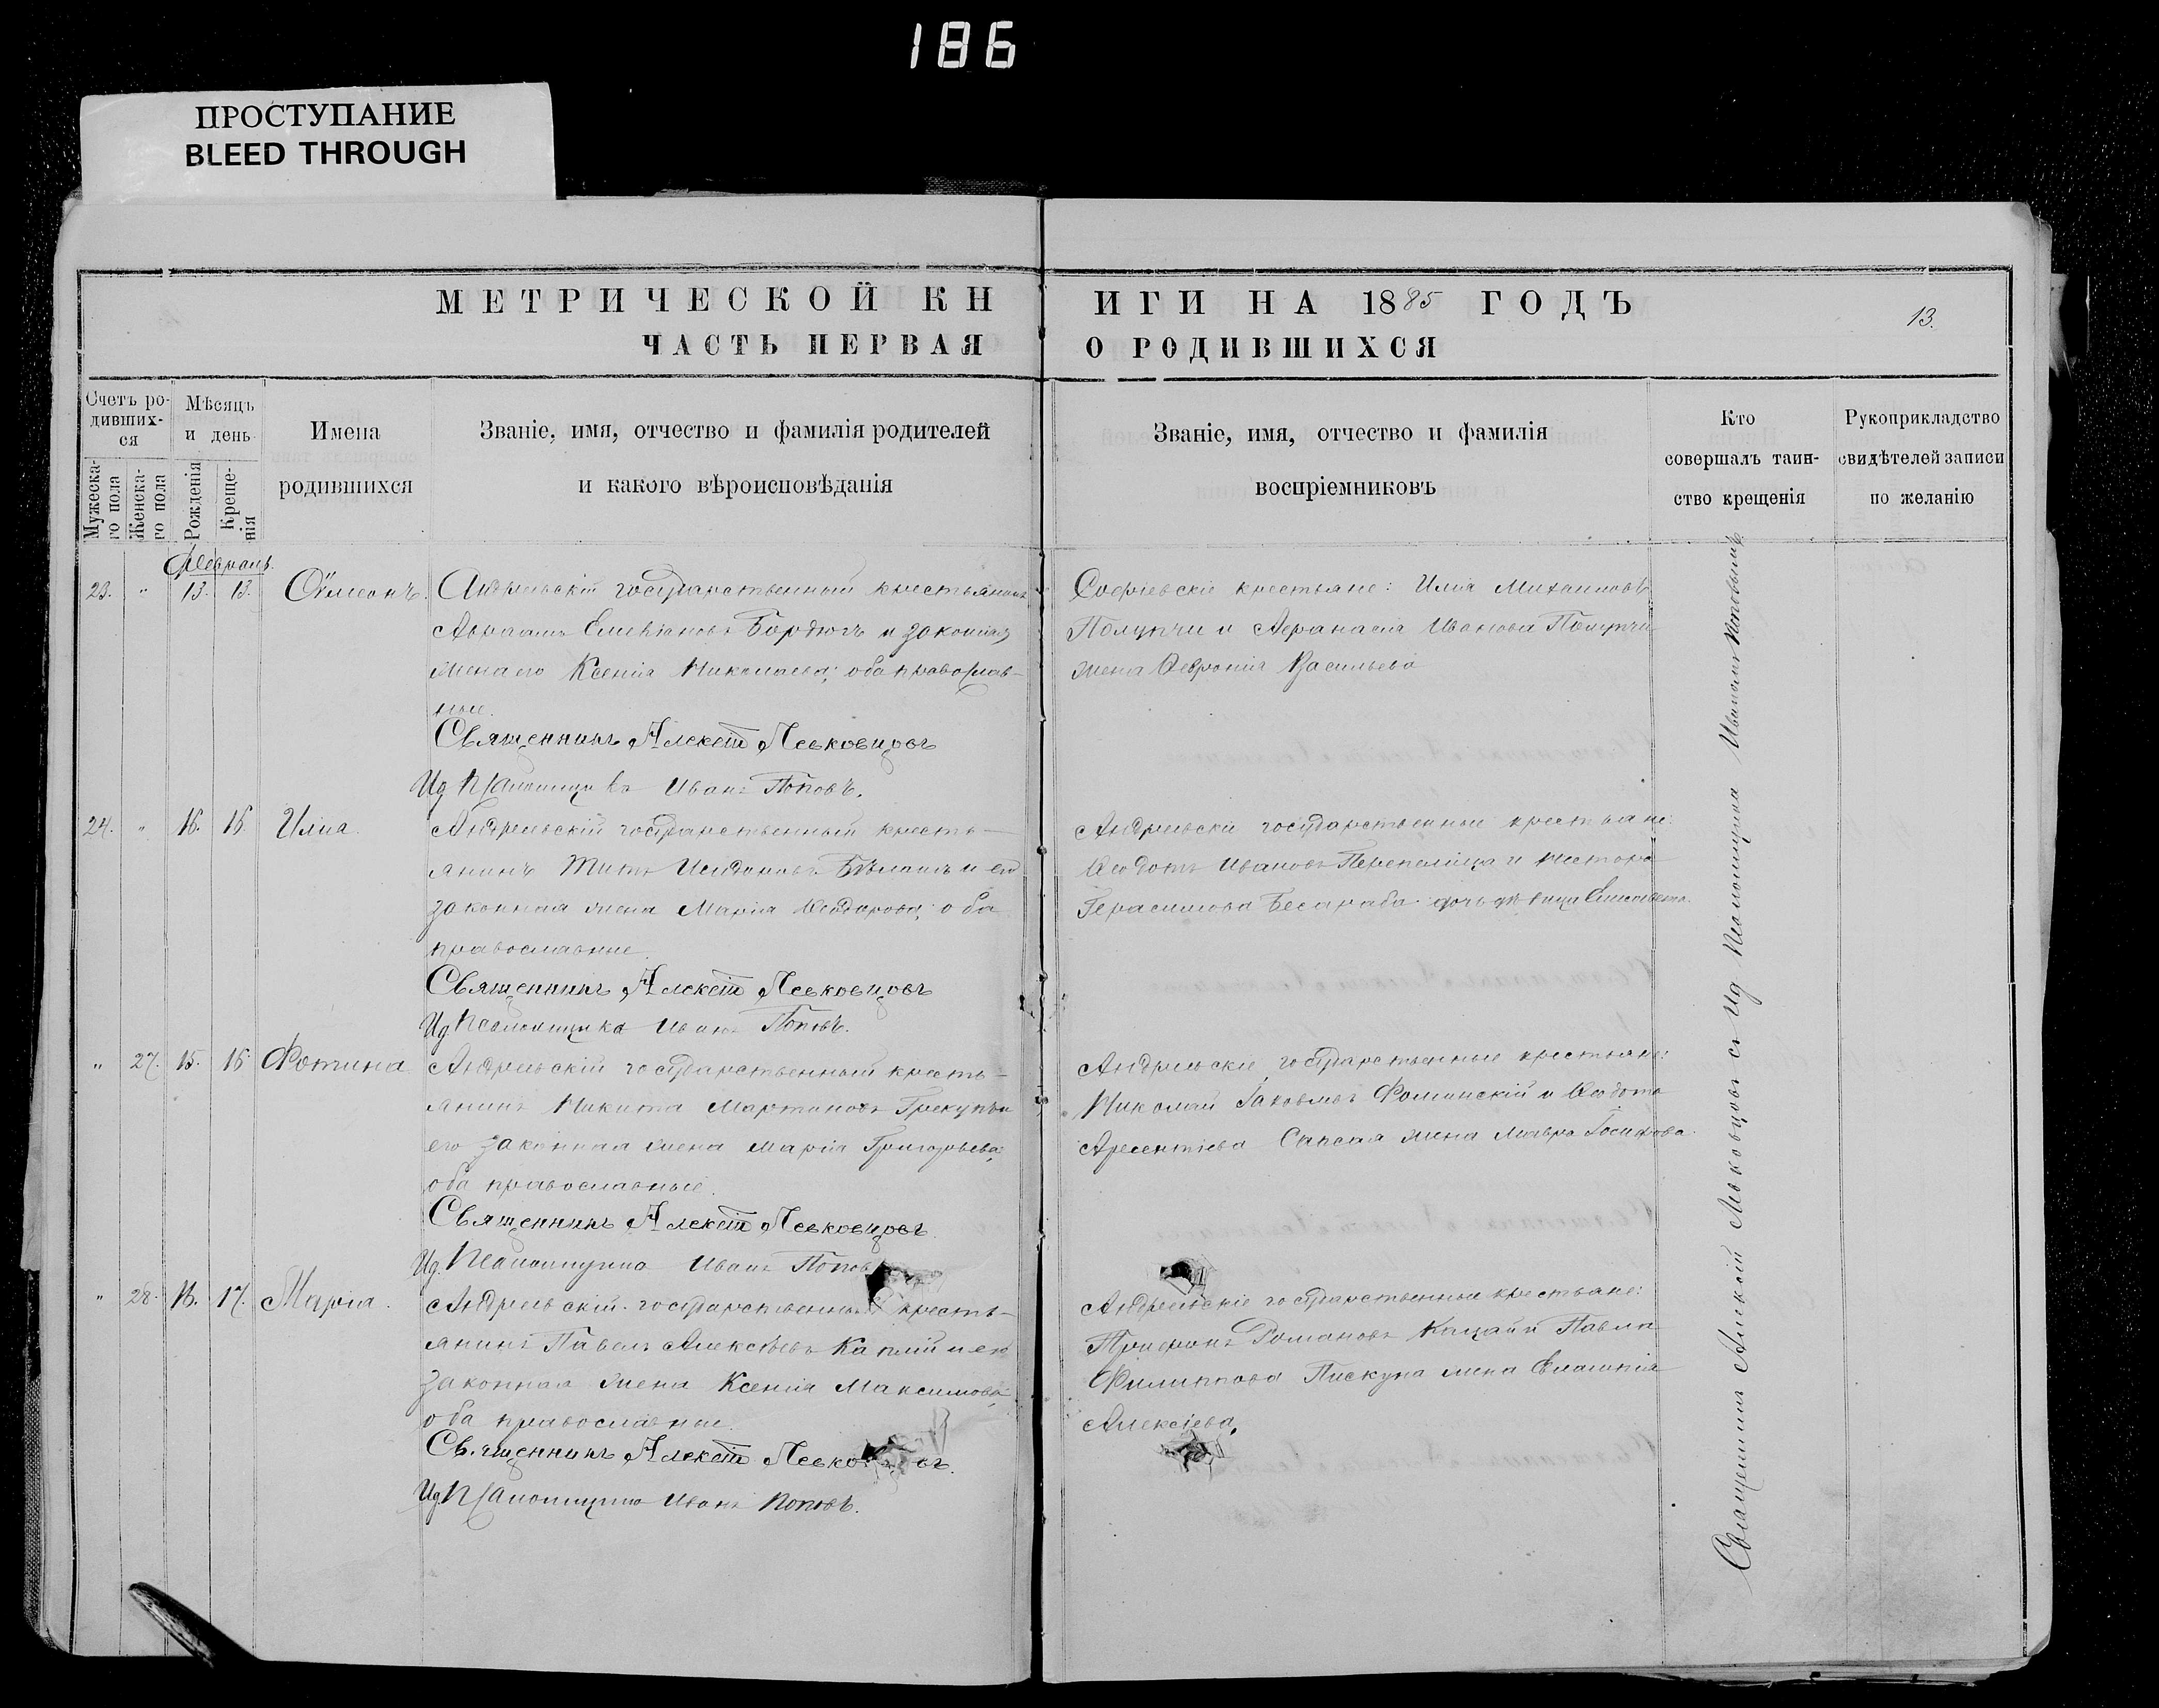 186
ПРОСТУПАНИЕ
BLEED THROUGH
МЕТРИЧЕСКОЙ КН
ИГИ НА 1885 ГОДЪ
13.
ЧАСТЬ ПЕРВАЯ
О РОДИВШИХСЯ
Счетъ ро-
дивших-
ся
Мужеска-
го пола
Женска-
го пола
Мѣсяцъ
и день
Рожденія
Креще-
нія
Имена
родившихся
Званіе, имя, отчество и фамилія родителей
и какого вѣроисповѣданія
Званіе, имя, отчество и фамилія
воспріемниковъ
Кто
совершалъ таин-
ство крещенія
Рукоприкладство
свидѣтелей записи
по желанію
Февраль
23. " 13. 13. Сѵмеонъ.
Андреевскій государственный крестьянинъ
Авраамъ Бордюгъ и законная
жена его Ксенія Николаева; оба православ-
ные.
Священникъ Алексій Левковцовъ
Ид Псаломщика Иванъ Поповъ.
Софіевскіе крестьяне: Илія Михаиловъ
Полупчи и Афанасія Иванова Полупчи
жена Февронія Васильева
24. " 16. 16 Илія.
Андреевскій государственный кресть-
янинъ Титъ и его
законная жена Марія Ѳеодорова; оба
православные.
Священникъ Алексій Левковцовъ
Ид Псаломщика Иванъ Поповъ.
Андреевскіе государственные крестьяне:
Ѳеодотъ Ивановъ Перепелица и Нестора
Герасимова Бесараба дочь дѣвица Елисавета
" 27. 15. 16 Фотина
Андреевскій государственный кресть-
янинъ Никита Мартиновъ и
его законная жена Марія Григорьева;
оба православные.
Священникъ Алексій Левковцовъ
Ид. Псаломщика Иванъ Поповъ
Андреевскіе государственные крестьяне:
Николай Іаковлевъ Фоминскій и Ѳеодота
Арсентіева жена Мавра Іосифова.
" 28. 16. 17. Марія.
Андреевскій государственный кресть-
янинъ Павелъ Алексѣевъ Каплій и его
законная жена Ксенія Максимова;
оба православные.
Священникъ Алексій Левковцовъ.
Ид. Псаломщика Иванъ Поповъ.
Андреевскіе государственные крестьяне:
Трифонъ Романовъ Кацай и Павла
Филиппова Пискуна жена
Алексіева.
Священникъ Алексій Левковцовъ съ Ид Псаломщика Иваномъ Поповымъ